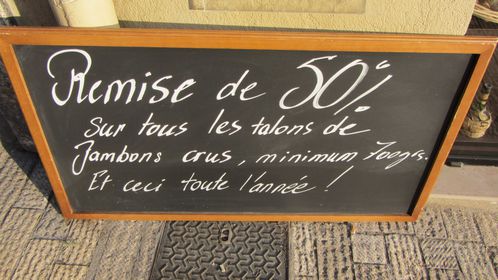 Remise de 50%
Sur tous les talons de
Jambons crus, minimum 700grs.
Et ceci toute l'année !